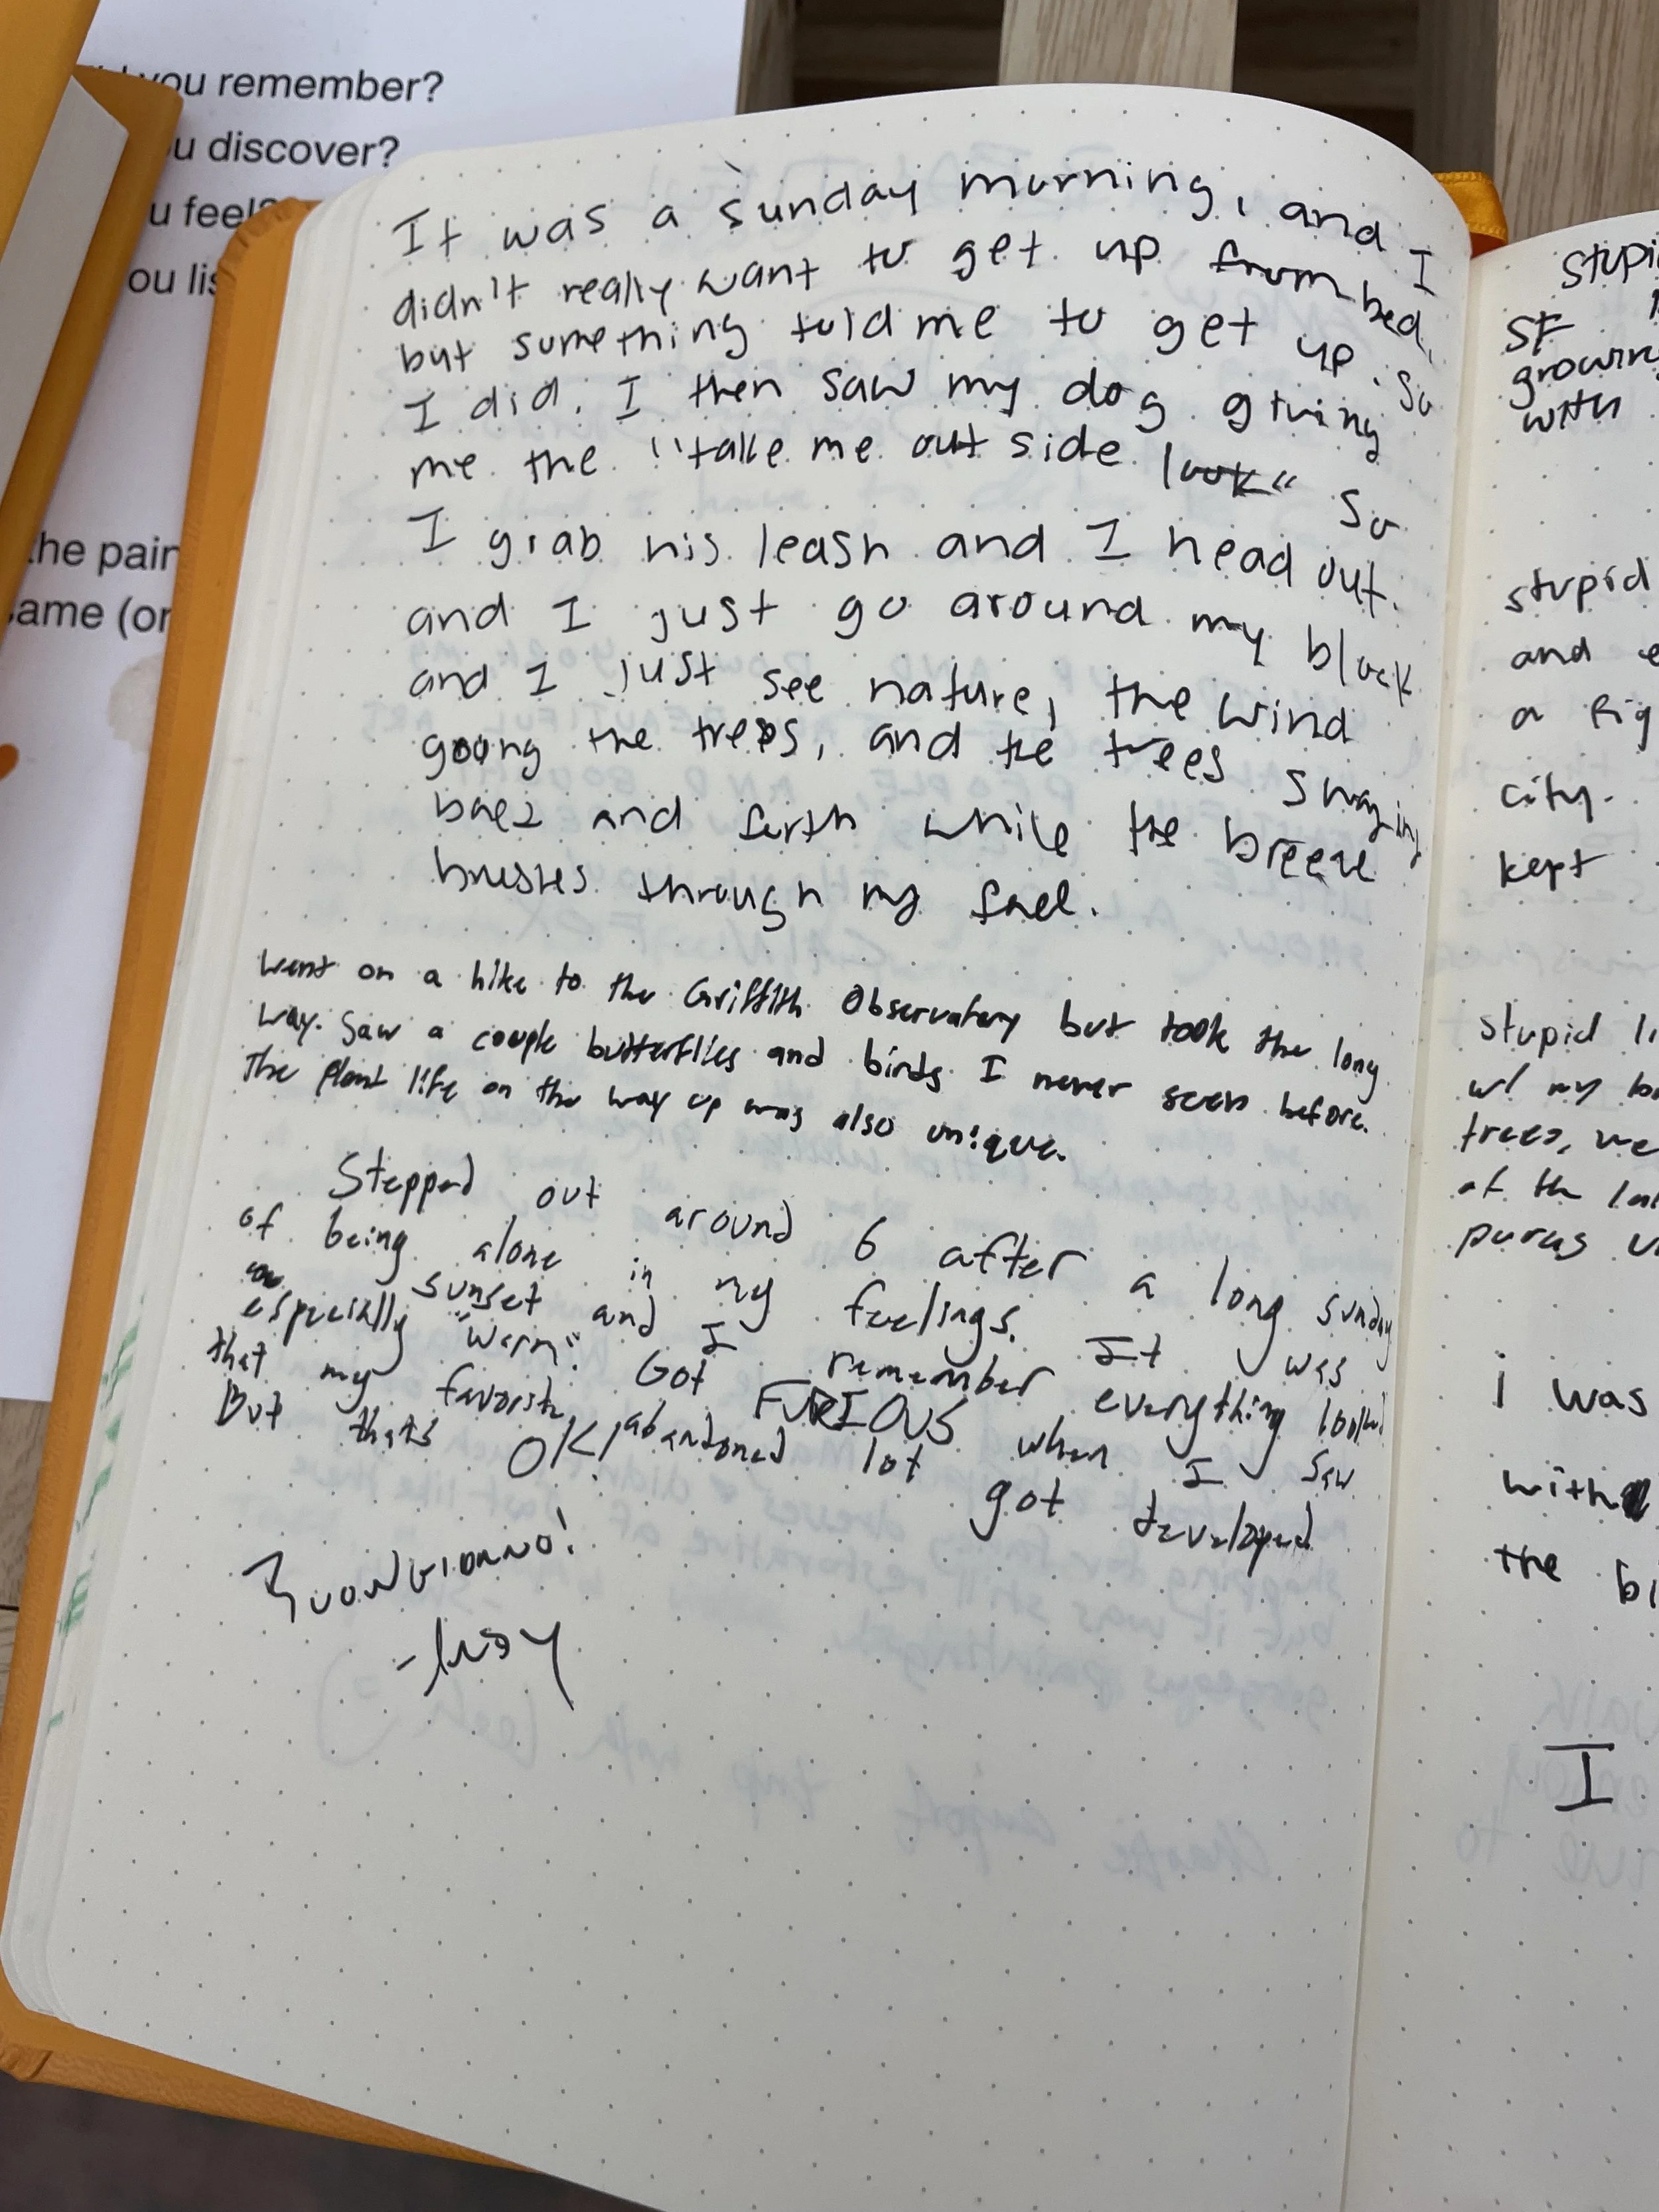 you remember?
u discover?
u feel?
ou lis
the pain
ame (or
It was a sunday morning, and I
didn't really want to get up from bed,
but something told me to get up. So
I did. I then saw my dog giving
me the "take me outside look" So
I grab his leash and I head out.
and I just go around my block
and I just see nature, the wind
going the trees, and the trees swaying
back and forth while the breeze
brushes through my face.
Went on a hike to the Griffith Observatory but took the long
way. Saw a couple butterflies and birds I never seen before.
The plant life on the way up was also unique.
Stepped out around 6 after a long sunday
of being alone in my feelings. It was
sunset and I remember everything looked
especially "warm". Got FURIOUS when I saw
that my favorite abandoned lot got developed
But thats OK!
BUONGIORNO!
Stupi
SF
growin
with
stupid
and e
a fig
city.
kept
stupid li
w/ my bo
trees, we
at the la
i was
with
the bi
I